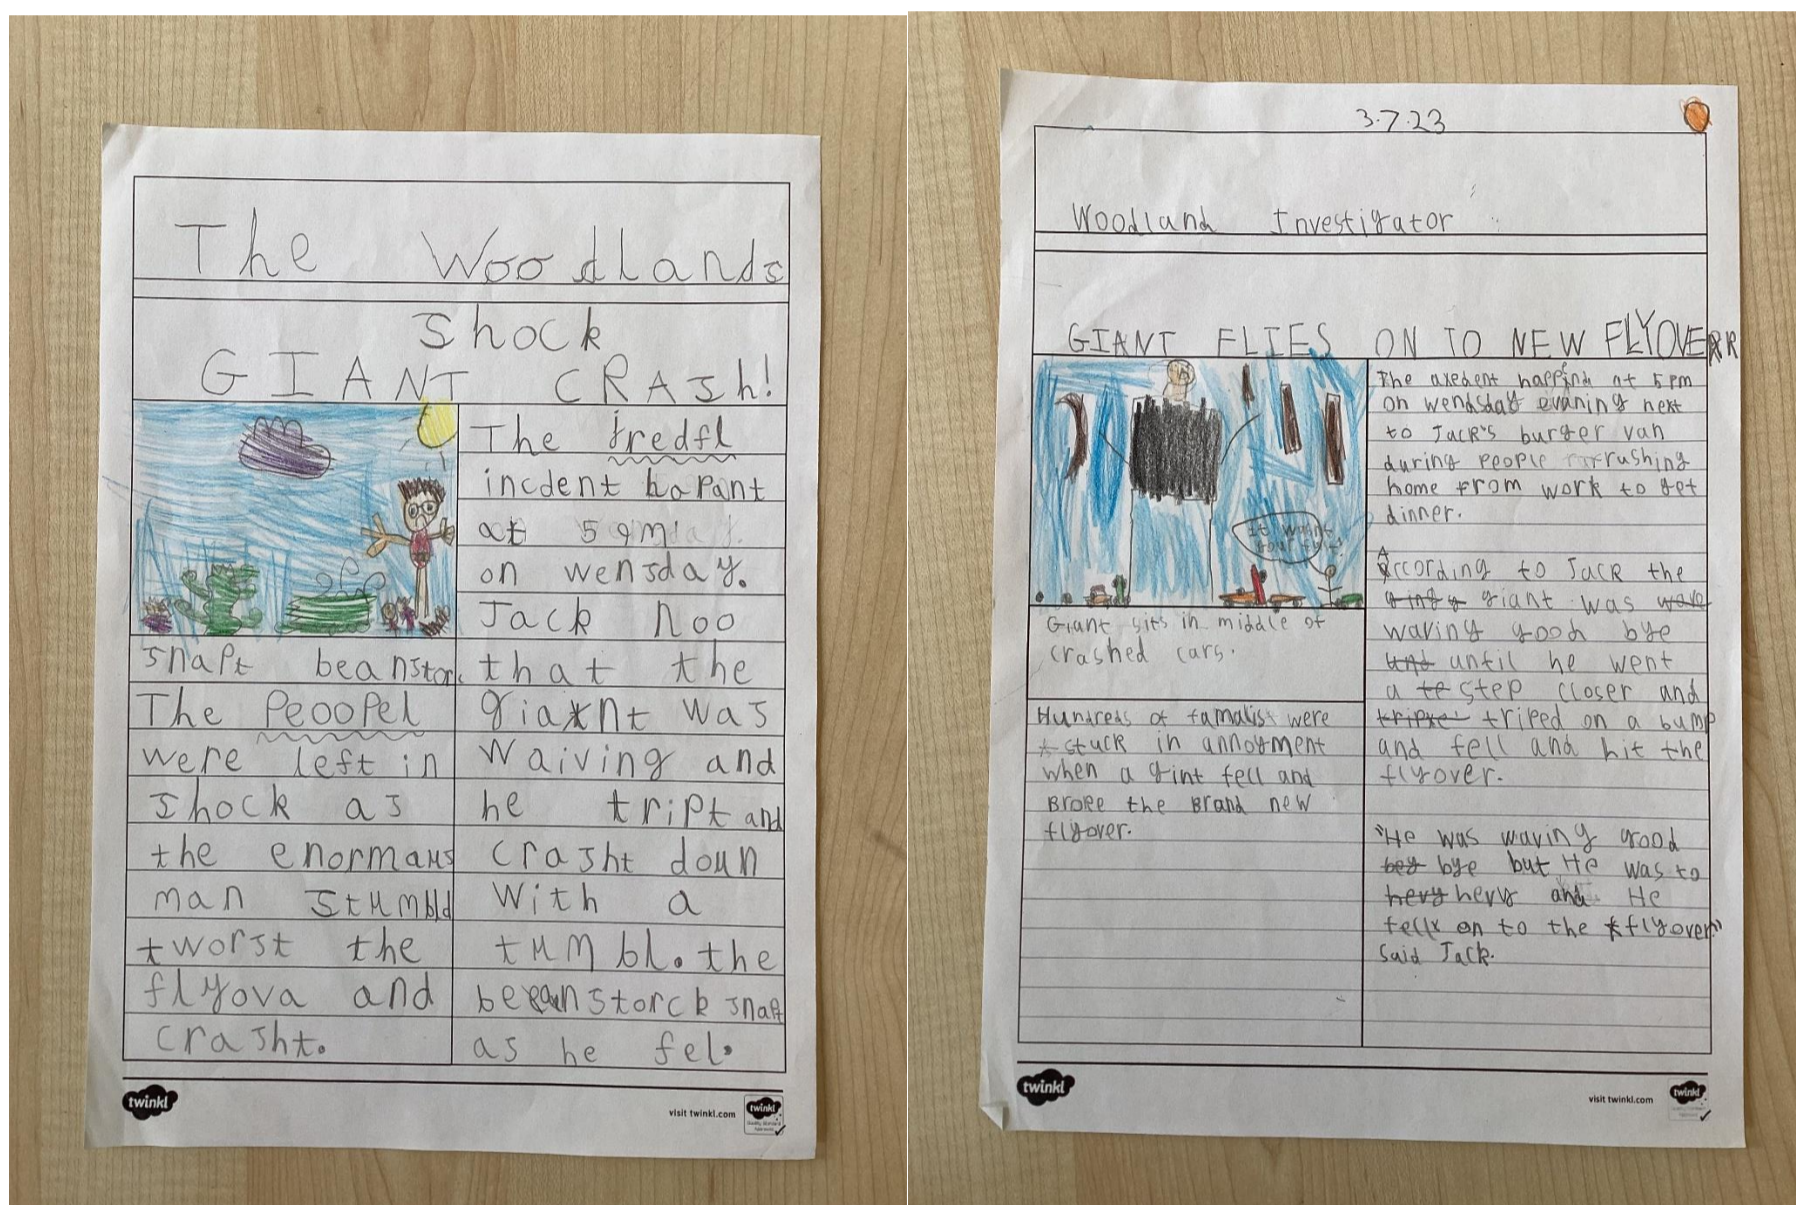 The Woodlands
Shock
GIANT CRASh!
snapt beanstorc
The Peoopel
were left in
shock as
the enormaus
man stumbld
tworst the
flyova and
crasht.
The dredfl
incdent hapant
at 5 qm
on wensday.
Jack noo
that the
giant was
waiving and
he tript and
crasht doun
with a
tumbl. the
beanstorck snapt
as he fel.
twinkl
visit twinkl.com
twinkl
3.7.23
Woodland Investigator
GIANT FLIES ON TO NEW FLYOVER
It wasnt
your folt!
Giant sits in middle of
crashed cars.
Hundreds of famalist were
stuck in annoyment
when a gint fell and
Broke the Brand new
flyover.
The axedent happind at 5pm
on wendsday evaning next
to Jack's burger van
during people rushing
home from work to get
dinner.
According to Jack the
giant was
waving good bye
until he went
a step closer and
triped on a bump
and fell and hit the
flyover.
"He was waving good
bye but He was to
hevy and He
fell on to the flyover"
said Jack.
twinkl
visit twinkl.com
twinkl